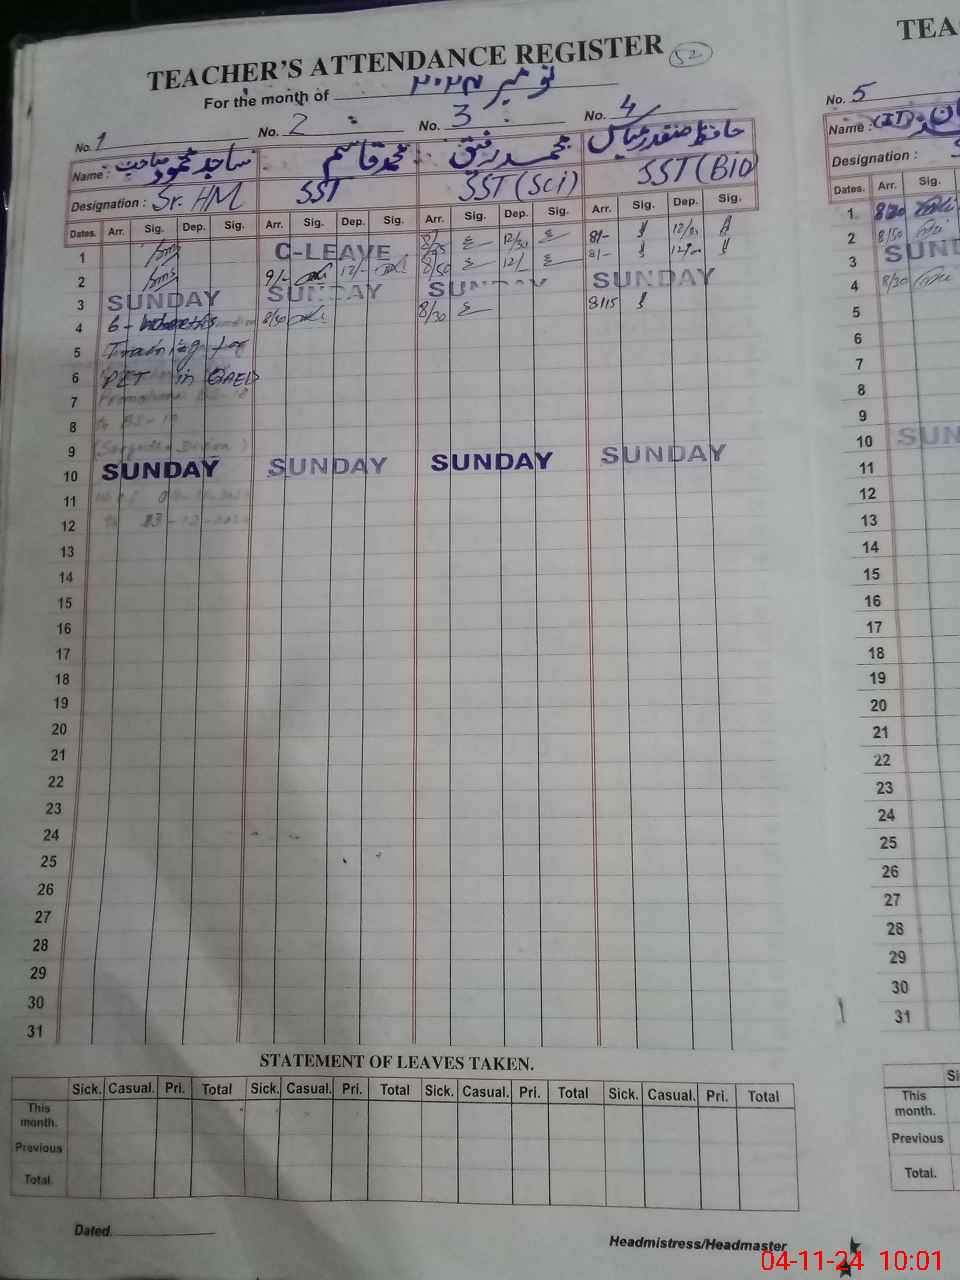 TEACHER'S ATTENDANCE REGISTER 52
For the month of نومبر ۲۰۲۴
No. 1 No. 2 No. 3 No. 4
Name : ساجد محمود صاحب محمد قاسم محمد رفیق حافظ صفدر عباس
Designation : Sr. HM SST SST (Sci) SST (BIO)
Dates. Arr. Sig. Dep. Sig. Arr. Sig. Dep. Sig. Arr. Sig. Dep. Sig. Arr. Sig. Dep. Sig.
1 C-LEAVE 8/- 
2 9/- 12/- 8/50 12/ 8/-
3 SUNDAY SUNDAY SUNDAY SUNDAY
4 6- 8/30 8/15
5 Training for
6 PET in QAED
7
8
9 (Sargodha Division)
10 SUNDAY SUNDAY SUNDAY SUNDAY
11
12
13
14
15
16
17
18
19
20
21
22
23
24
25
26
27
28
29
30
31
STATEMENT OF LEAVES TAKEN.
Sick. Casual. Pri. Total Sick. Casual. Pri. Total Sick. Casual. Pri. Total Sick. Casual. Pri. Total
This month.
Previous
Total.
Dated.
Headmistress/Headmaster
TEA
No. 5
Name : (IT)
Designation : S
Dates. Arr. Sig.
1 8/20
2 8/50
3 SUND
4 8/20
5
6
7
8
9
10 SUN
11
12
13
14
15
16
17
18
19
20
21
22
23
24
25
26
27
28
29
30
31
Si
This month.
Previous
Total.
04-11-24 10:01